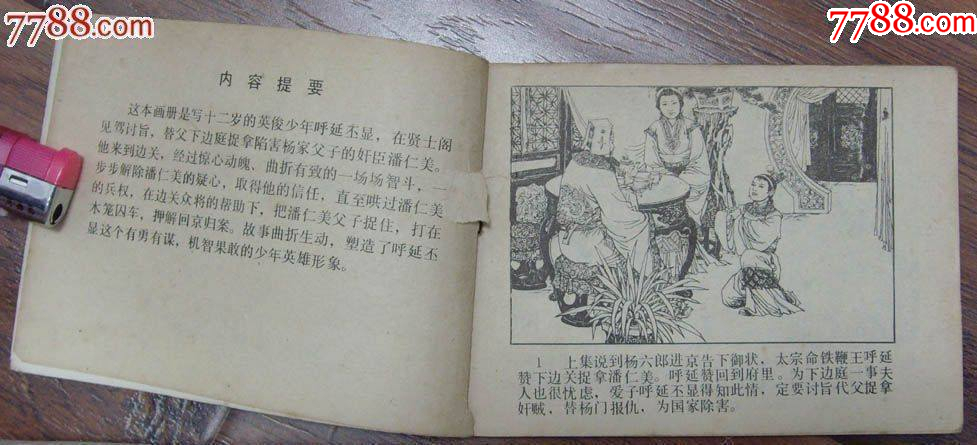 7788.com
7788.com
内容提要
这本画册是写十二岁的英俊少年呼延丕显，在贤士阁
见驾讨旨，替父下边庭捉拿陷害杨家父子的奸臣潘仁美。
他来到边关，经过惊心动魄、曲折有致的一场场智斗，一
步步解除潘仁美的疑心，取得他的信任，直至哄过潘仁美
的兵权，在边关众将的帮助下，把潘仁美父子捉住，打在
木笼囚车，押解回京归案。故事曲折生动，塑造了呼延丕
显这个有勇有谋，机智果敢的少年英雄形象。
1 上集说到杨六郎进京告下御状，太宗命铁鞭王呼延
赞下边关捉拿潘仁美。呼延赞回到府里。为下边庭一事夫
人也很忧虑，爱子呼延丕显得知此情，定要讨旨代父捉拿
奸贼，替杨门报仇，为国家除害。